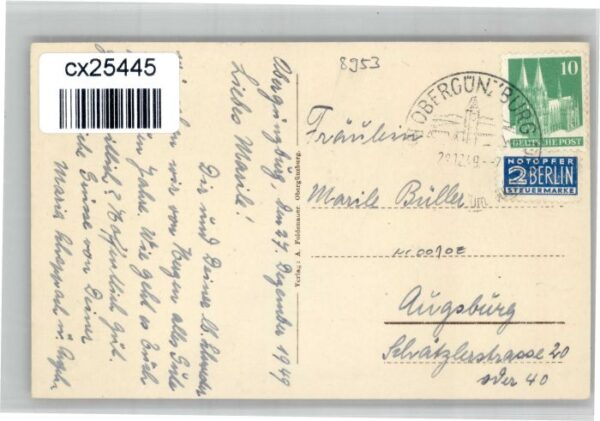 cx25445
8953
OBERGÜNZBURG
10
DEUTSCHE POST
NOTOPFER
2 BERLIN
STEUERMARKE
Obergünzburg, den 27. Dezember 1949
Liebe Marile!
Dir und Deiner lb. Schwester
wir von Herzen alles Gute
Jahr. Wie geht es Euch
Hoffentlich gut.
Grüße von Deiner
Maria
Verlag: A. Feldenauer, Obergünzburg.
Fräulein
Marile Büller
Nr 0070E
Augsburg
Schätzlerstrasse 20
oder 40